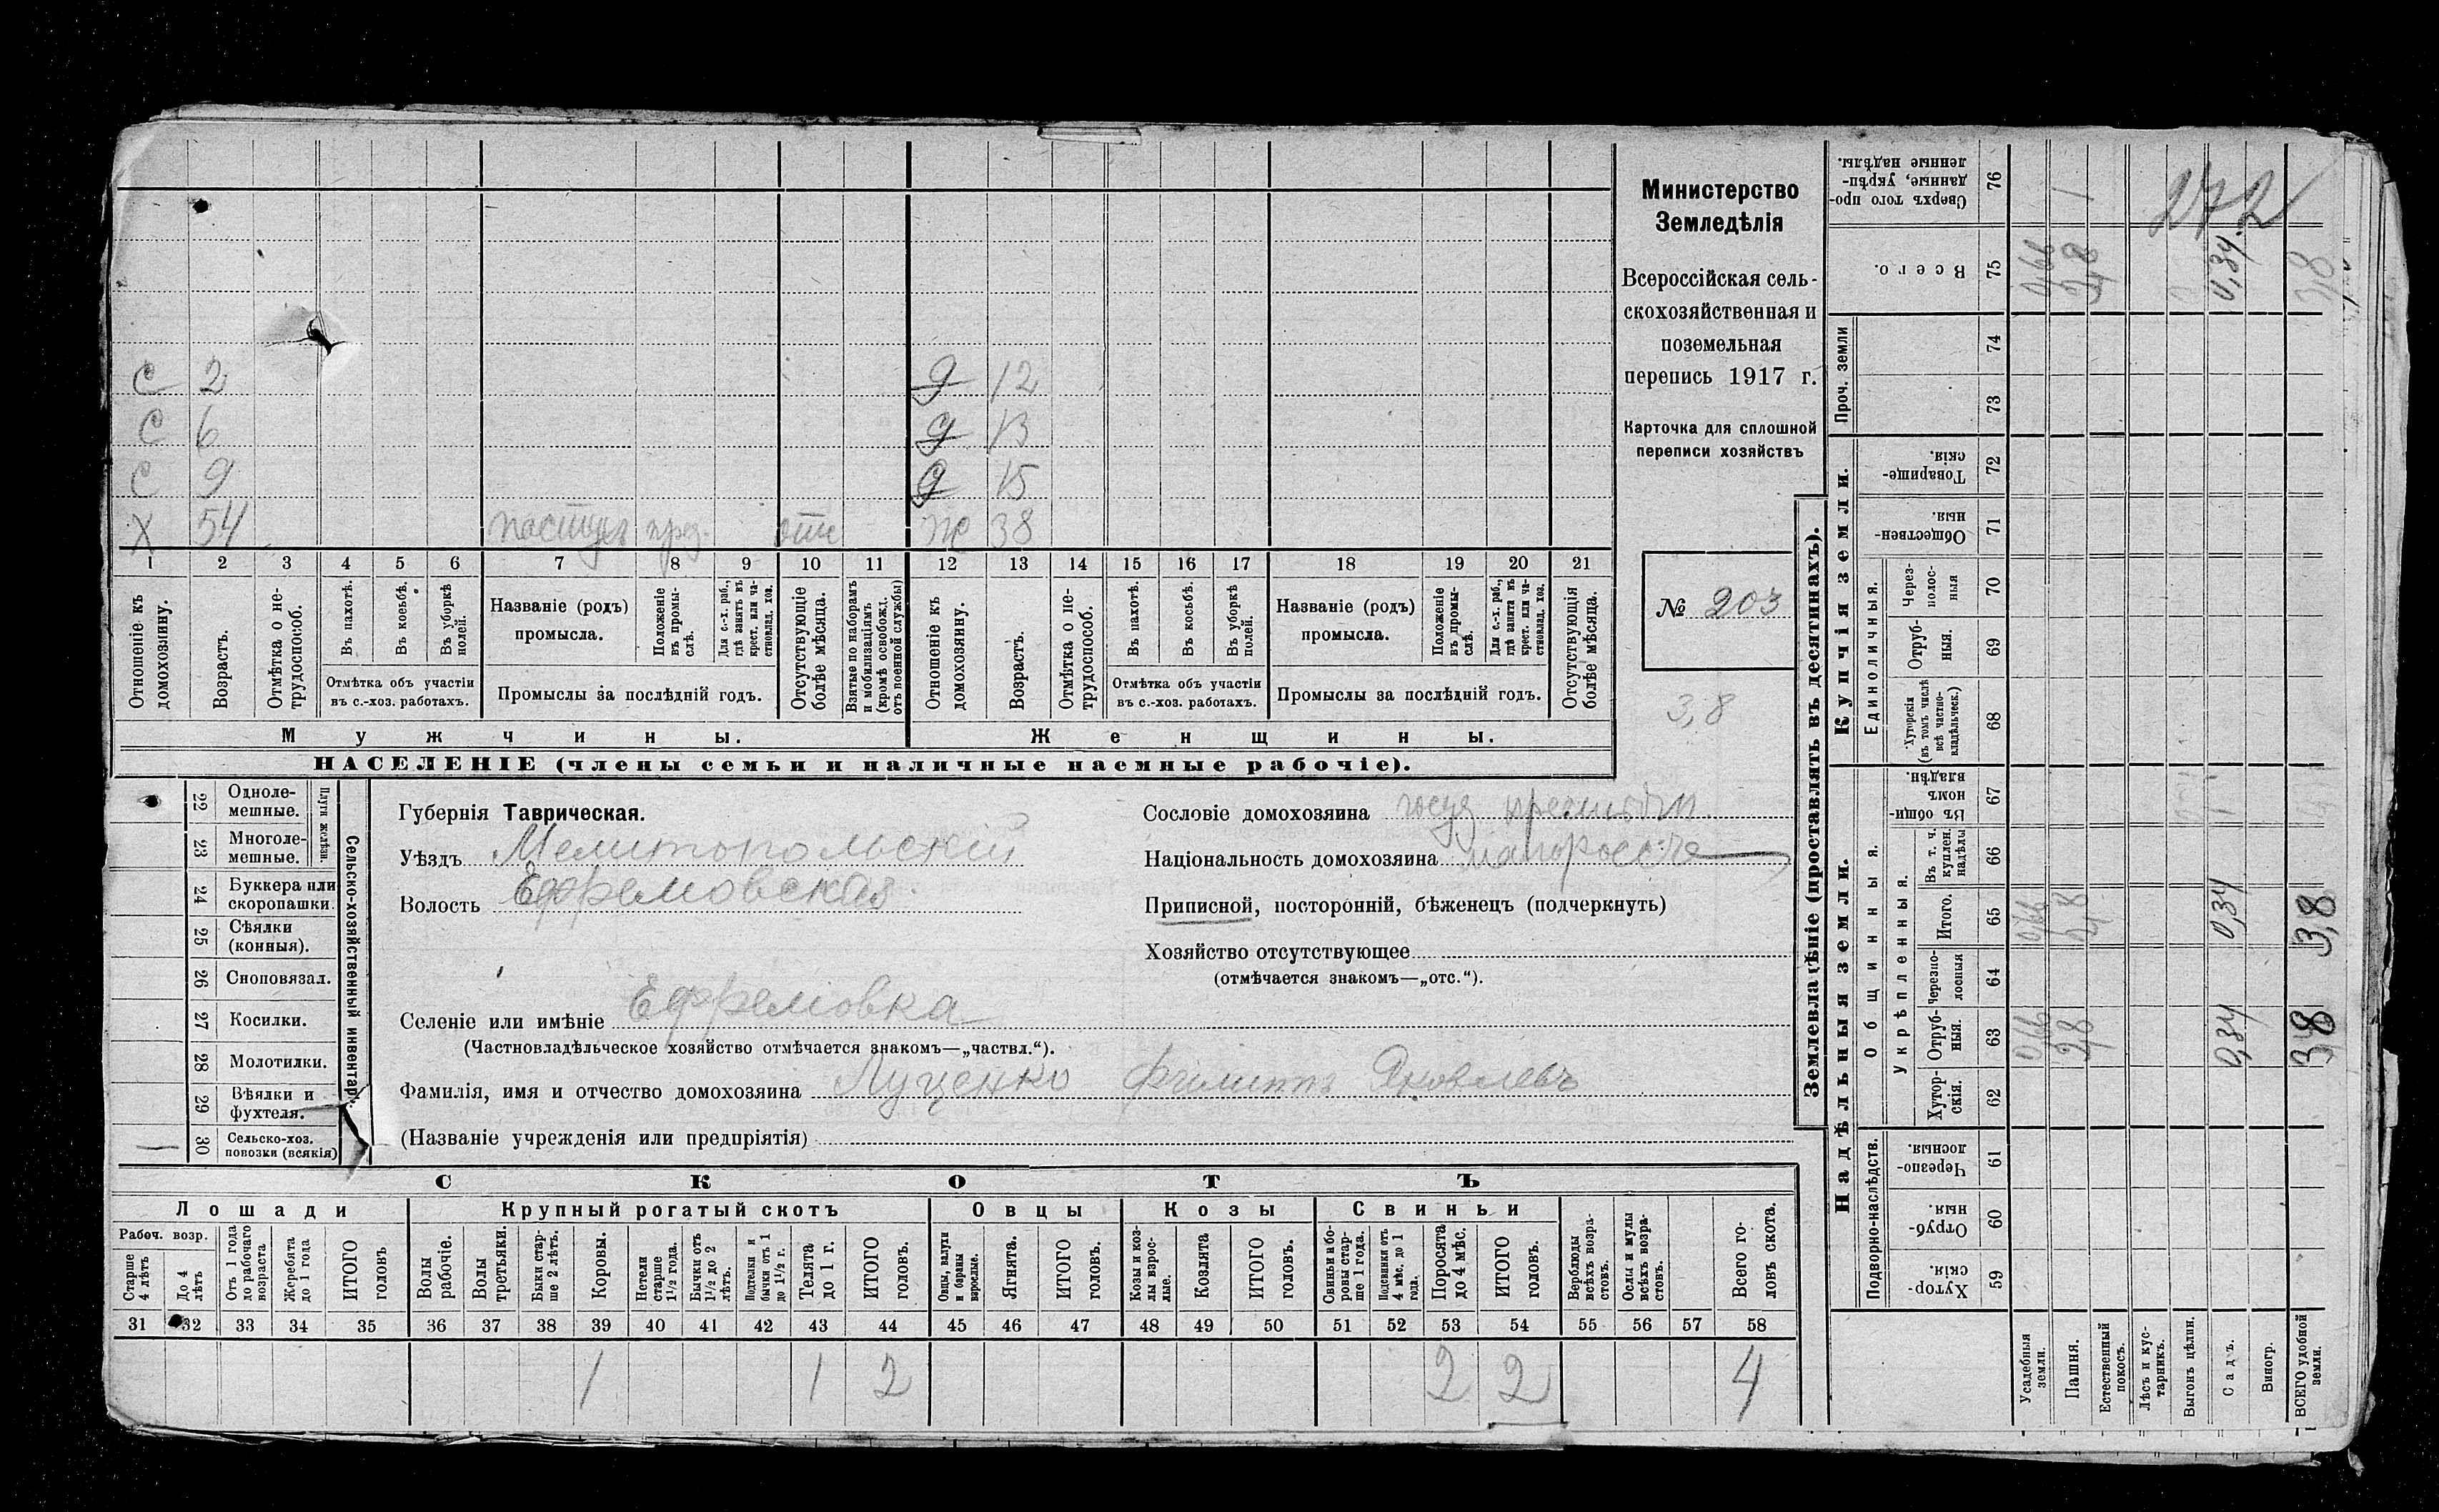 С 2 д 12
С 6 д 13
С 9 д 15
Х 54 пастух отс ж 38
1 2 3 4 5 6 7 8 9 10 11 12 13 14 15 16 17 18 19 20 21
Отношеніе къ домохозяину.
Возрастъ.
Отмѣтка о нетрудоспособ.
Въ пахотѣ.
Въ косьбѣ.
Въ уборкѣ полей.
Отмѣтка объ участіи
въ с.-хоз. работахъ.
Названіе (родъ)
промысла.
Положеніе въ промыслѣ.
Для с.-х. раб., гдѣ занятъ въ крест. или частновлад. хоз.
Промыслы за послѣдній годъ.
Отсутствующіе болѣе мѣсяца.
Взятые по наборамъ и мобилизаціямъ (кромѣ освобожд. отъ военной службы)
Отношеніе къ домохозяину.
Возрастъ.
Отмѣтка о нетрудоспособ.
Въ пахотѣ.
Въ косьбѣ.
Въ уборкѣ полей.
Отмѣтка объ участіи
въ с.-хоз. работахъ.
Названіе (родъ)
промысла.
Положеніе въ промыслѣ.
Для с.-х. раб., гдѣ занята въ крест. или частновлад. хоз.
Промыслы за послѣдній годъ.
Отсутствующія болѣе мѣсяца.
Мужчины. Женщины.
НАСЕЛЕНІЕ (члены семьи и наличные наемные рабочіе).
Министерство
Земледѣлія
Всероссійская сель-
скохозяйственная и
поземельная
перепись 1917 г.
Карточка для сплошной
переписи хозяйствъ
№ 203
3,8
Сельско-хозяйственный инвентарь.
Плуги желѣзн.
22 Однолемешные.
23 Многолемешные.
24 Буккера или скоропашки.
25 Сѣялки (конныя).
26 Сноповязал.
27 Косилки.
28 Молотилки.
29 Вѣялки и фухтеля.
30 Сельско-хоз. повозки (всякія) —
Губернія Таврическая.
Уѣздъ Мелитопольскій
Волость Ефремовская
Селеніе или имѣніе Ефремовка
(Частновладѣльческое хозяйство отмѣчается знакомъ—„частвл.“).
Фамилія, имя и отчество домохозяина Луценко Филиппъ Яковлевъ
(Названіе учрежденія или предпріятія)
Сословіе домохозяина
Національность домохозяина
Приписной, посторонній, бѣженецъ (подчеркнуть)
Хозяйство отсутствующее
(отмѣчается знакомъ—„отс.“).
СКОТЪ
Лошади Крупный рогатый скотъ Овцы Козы Свиньи
Рабоч. возр.
Старше 4 лѣтъ
До 4 лѣтъ
Отъ 1 года до рабочаго возраста
Жеребята до 1 года
ИТОГО головъ
Волы рабочіе.
Волы третьяки.
Быки старше 2 лѣтъ.
Коровы.
Нетели старше 1½ года.
Бычки отъ 1½ до 2 лѣтъ.
Подтелки и бычки отъ 1 до 1½ г.
Телята до 1 г.
ИТОГО головъ.
Овцы, валухи и бараны взрослые.
Ягнята.
ИТОГО головъ.
Козы и козлы взрослые.
Козлята
ИТОГО головъ.
Свиньи и боровы старше 1 года.
Подсвинки отъ 4 мѣс. до 1 года.
Поросята до 4 мѣс.
ИТОГО головъ.
Верблюды всѣхъ возрастовъ.
Ослы и мулы всѣхъ возрастовъ.
Всего головъ скота.
31 32 33 34 35 36 37 38 39 40 41 42 43 44 45 46 47 48 49 50 51 52 53 54 55 56 57 58
1 1 2 2 2 4
Землевладѣніе (проставлять въ десятинахъ).
Надѣльныя земли.
Купчія земли.
Проч. земли
Подворно-наслѣдств.
Общинныя.
Укрѣпленныя.
Единоличныя.
Хуторскія. 59
Отрубныя. 60
Черезполосныя 61
Хуторскія. 62
Отрубныя. 63
Черезполосныя 64
Итого. 65
Въ т. ч. куплен. надѣлы 66
Въ общинномъ владѣн. 67
Хуторскія (въ томъ числѣ всѣ частновладѣльческ.) 68
Отрубныя. 69
Черезполосныя 70
Общественныя. 71
Товарищескія. 72
73
74
Всего. 75
Сверхъ того проданные, укрѣпленные надѣлы. 76
Усадебныя земли.
Пашня.
Естественный покосъ.
Лѣсъ и кустарникъ.
Выгонъ цѣлин.
Садъ.
Виногр.
ВСЕГО удобной земли.
0,66 2,8 0,34 3,8
0,66 2,8 0,34 3,8
0,66 2,8 0,34 3,8
272